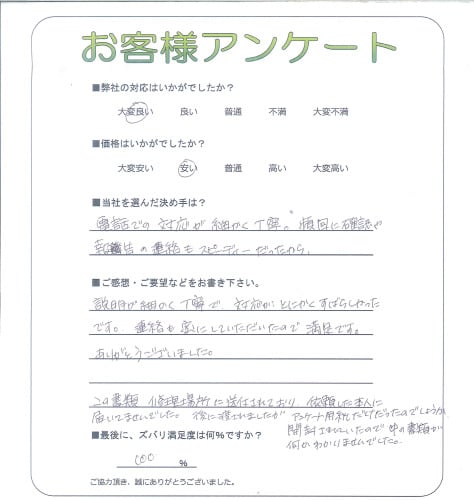 お客様アンケート
■弊社の対応はいかがでしたか？
大変良い 良い 普通 不満 大変不満
■価格はいかがでしたか？
大変安い 安い 普通 高い 大変高い
■当社を選んだ決め手は？
電話での対応が細かく丁寧。頻回に確認や
報告の連絡もスピーディーだったから。
■ご感想・ご要望などをお書き下さい。
説明が細かく丁寧で、対応がとにかくすばらしかった
です。連絡も密にしていただいたので満足です。
ありがとうございました。
この書類、修理場所に送付されており、依頼した本人に
届いてませんでした。後に渡されましたが アンケート用紙だけだったのでしょうか
開封されていたので 中の書類が
何かわかりませんでした。
■最後に、ズバリ満足度は何%ですか？
100 %
ご協力頂き、誠にありがとうございました。